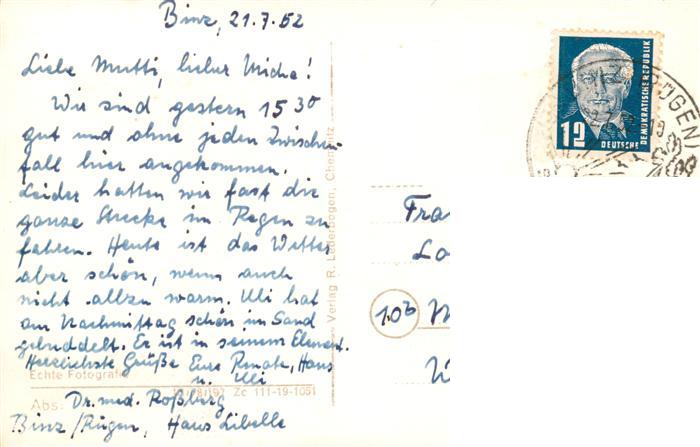 Binz, 21.7.52
Liebe Mutti, lieber Micha!
Wir sind gestern 15 30
gut und ohne jeden Zwischen
fall hier angekommen.
Leider hatten wir fast die
ganze Strecke im Regen zu
fahren. Heute ist das Wetter
aber schön, wenn auch
nicht allzu warm. Uli hat
am Nachmittag schön im Sand
gebuddelt. Er ist in seinem Element.
Herzlichste Grüße Eure Renate, Hans
u. Uli
Echte Fotografie
Zc 111-19-1051
Abs: Dr. med. Roßberg
Binz/Rügen, Haus Libelle
Verlag R. Lederbogen, Chemnitz
12
DEUTSCHE
DEMOKRATISCHE REPUBLIK
ÜGEN)
Fra
Lo
10b